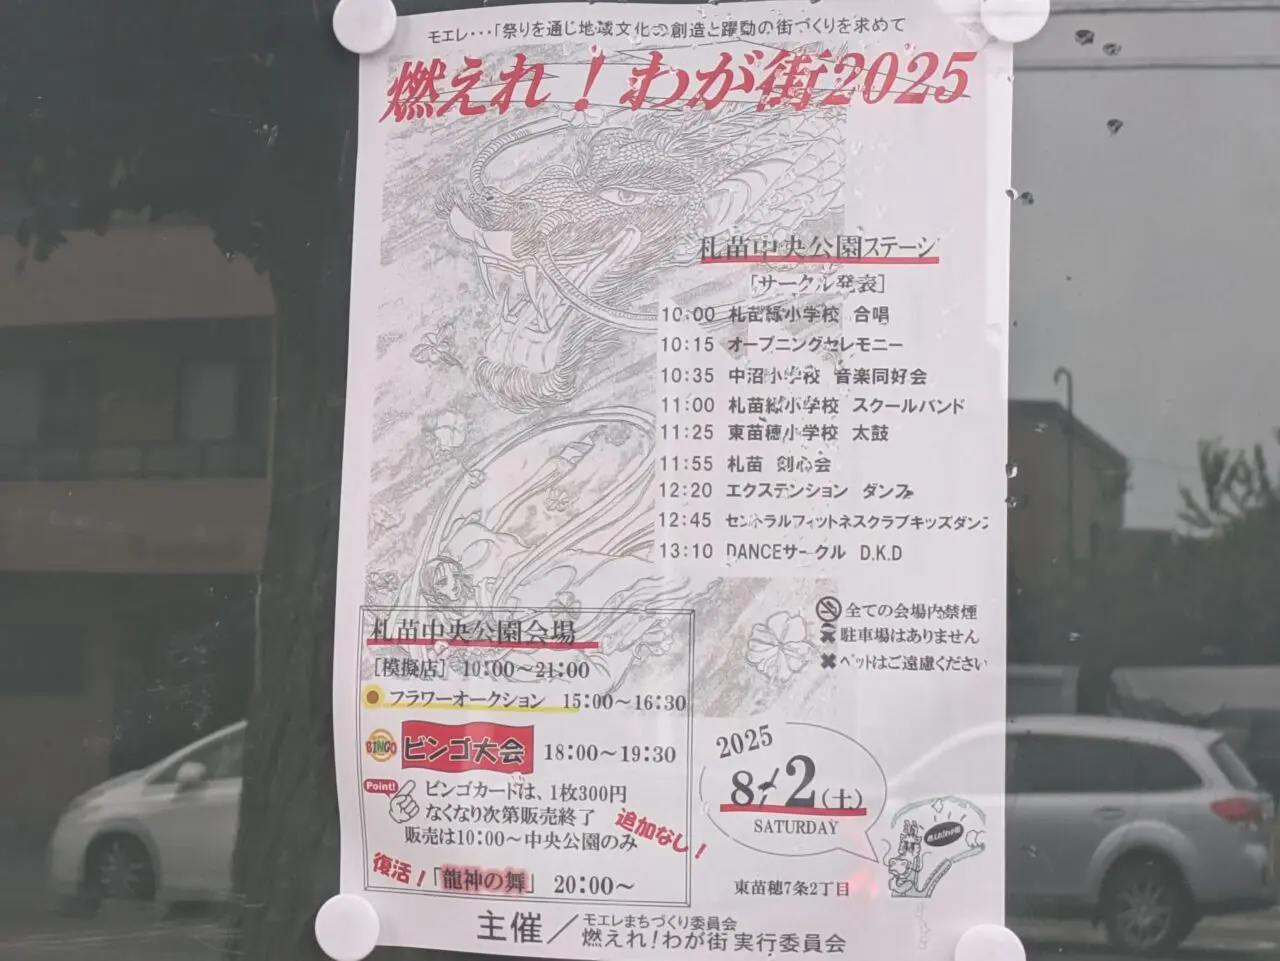 モエレ・・・「祭りを通じ地域文化の創造と躍動の街づくりを求めて
燃えれ！わが街2025
札苗中央公園ステージ
［サークル発表］
10:00 札苗緑小学校 合唱
10:15 オープニングセレモニー
10:35 中沼小学校 音楽同好会
11:00 札苗緑小学校 スクールバンド
11:25 東苗穂小学校 太鼓
11:55 札苗 剣心会
12:20 エクステンション ダンス
12:45 セントラルフィットネスクラブキッズダンス
13:10 DANCEサークル D.K.D
全ての会場内禁煙
✖ 駐車場はありません
✖ ペットはご遠慮ください
札苗中央公園会場
［模擬店］ 10:00～21:00
フラワーオークション 15:00～16:30
BINGO ビンゴ大会 18:00～19:30
Point! ビンゴカードは、1枚300円
なくなり次第販売終了
販売は10:00～中央公園のみ
追加なし！
復活！「龍神の舞」 20:00～
2025
8/2(土)
SATURDAY
燃えれ!わが街
東苗穂7条2丁目
主催／モエレまちづくり委員会
燃えれ！わが街 実行委員会